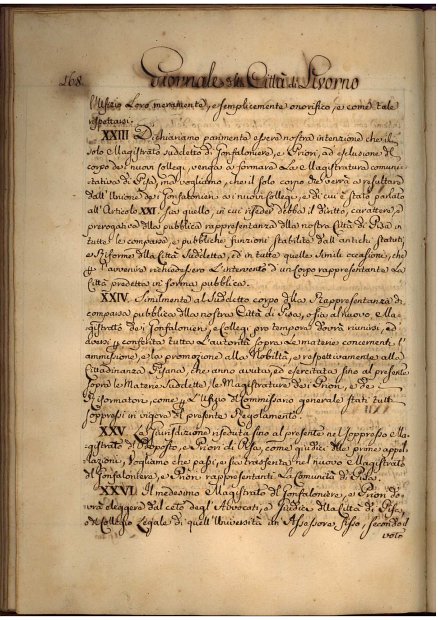 168. Giornale della Città di Livorno
l'Ufizio Loro meramente, e semplicemente onorifico, e come tale
rispettarsi.
XXIII Dichiariamo parimente essere nostra intenzione che il
solo Magistrato suddetto di Gonfaloniere, e Priori, ad esclusione del
corpo de i nuovi Collegi, venga a formare La Magistratura comuni-
tativa di Pisa, ma vogliamo, che il solo corpo che verrà a resultare
dall'Unione de i Gonfalonieri a i nuovi Collegi, e di cui è stato parlato
all'Articolo XXI sia quello, in cui riseder debba il diritto, carattere, e
prerogativa della pubblica rappresentanza della nostra Città di Pisa in
tutte le comparse, e pubbliche funzioni stabilite dall'antichi statuti,
e Riforme della Città Suddetta, ed in tutte quelle simili occasioni, che
p l'avvenire richiedessero L'intervento d'un Corpo rappresentante La
Città predetta in forma pubblica.
XXIV. Similmente al suddetto corpo della Rappresentanza di
comparsa pubblica della nostra Città di Pisa, o sia al nuovo Ma-
gistrato de i Gonfalonieri, e Collegi pro tempore dovrà riunirsi, ed
aversi p conferita tutta L'autorità sopra Le materie concernenti l'
ammissione, e la promozione alla Nobiltà, e respettivamente alla
Cittadinanza Pisana, che anno avuta, ed esercitata fino al presente
sopra le Materie suddette, le Magistrature dei Priori, e de
Riformatori, come p l'Ufizio del Commissario generale stati tutti
soppressi in vigore del presente Regolamento.
XXV. La Giurisdizione riseduta fino al presente nel soppresso Ma-
gistrato di Proposto, e Priori di Pisa, come giudici delle prime appel-
lazioni, Vogliamo che passi, e sia trasferita nel nuovo Magistrato
di Gonfaloniere, e Priori rappresentanti La Comunità di Pisa.
XXVI. Il medesimo Magistrato di Gonfaloniere, e Priori do-
vrà eleggere dal ceto degl'Avvocati, o Giudici della Città di Pisa,
o del Collegio Legale di quell'Università un Assessore fisso, secondo il
voto